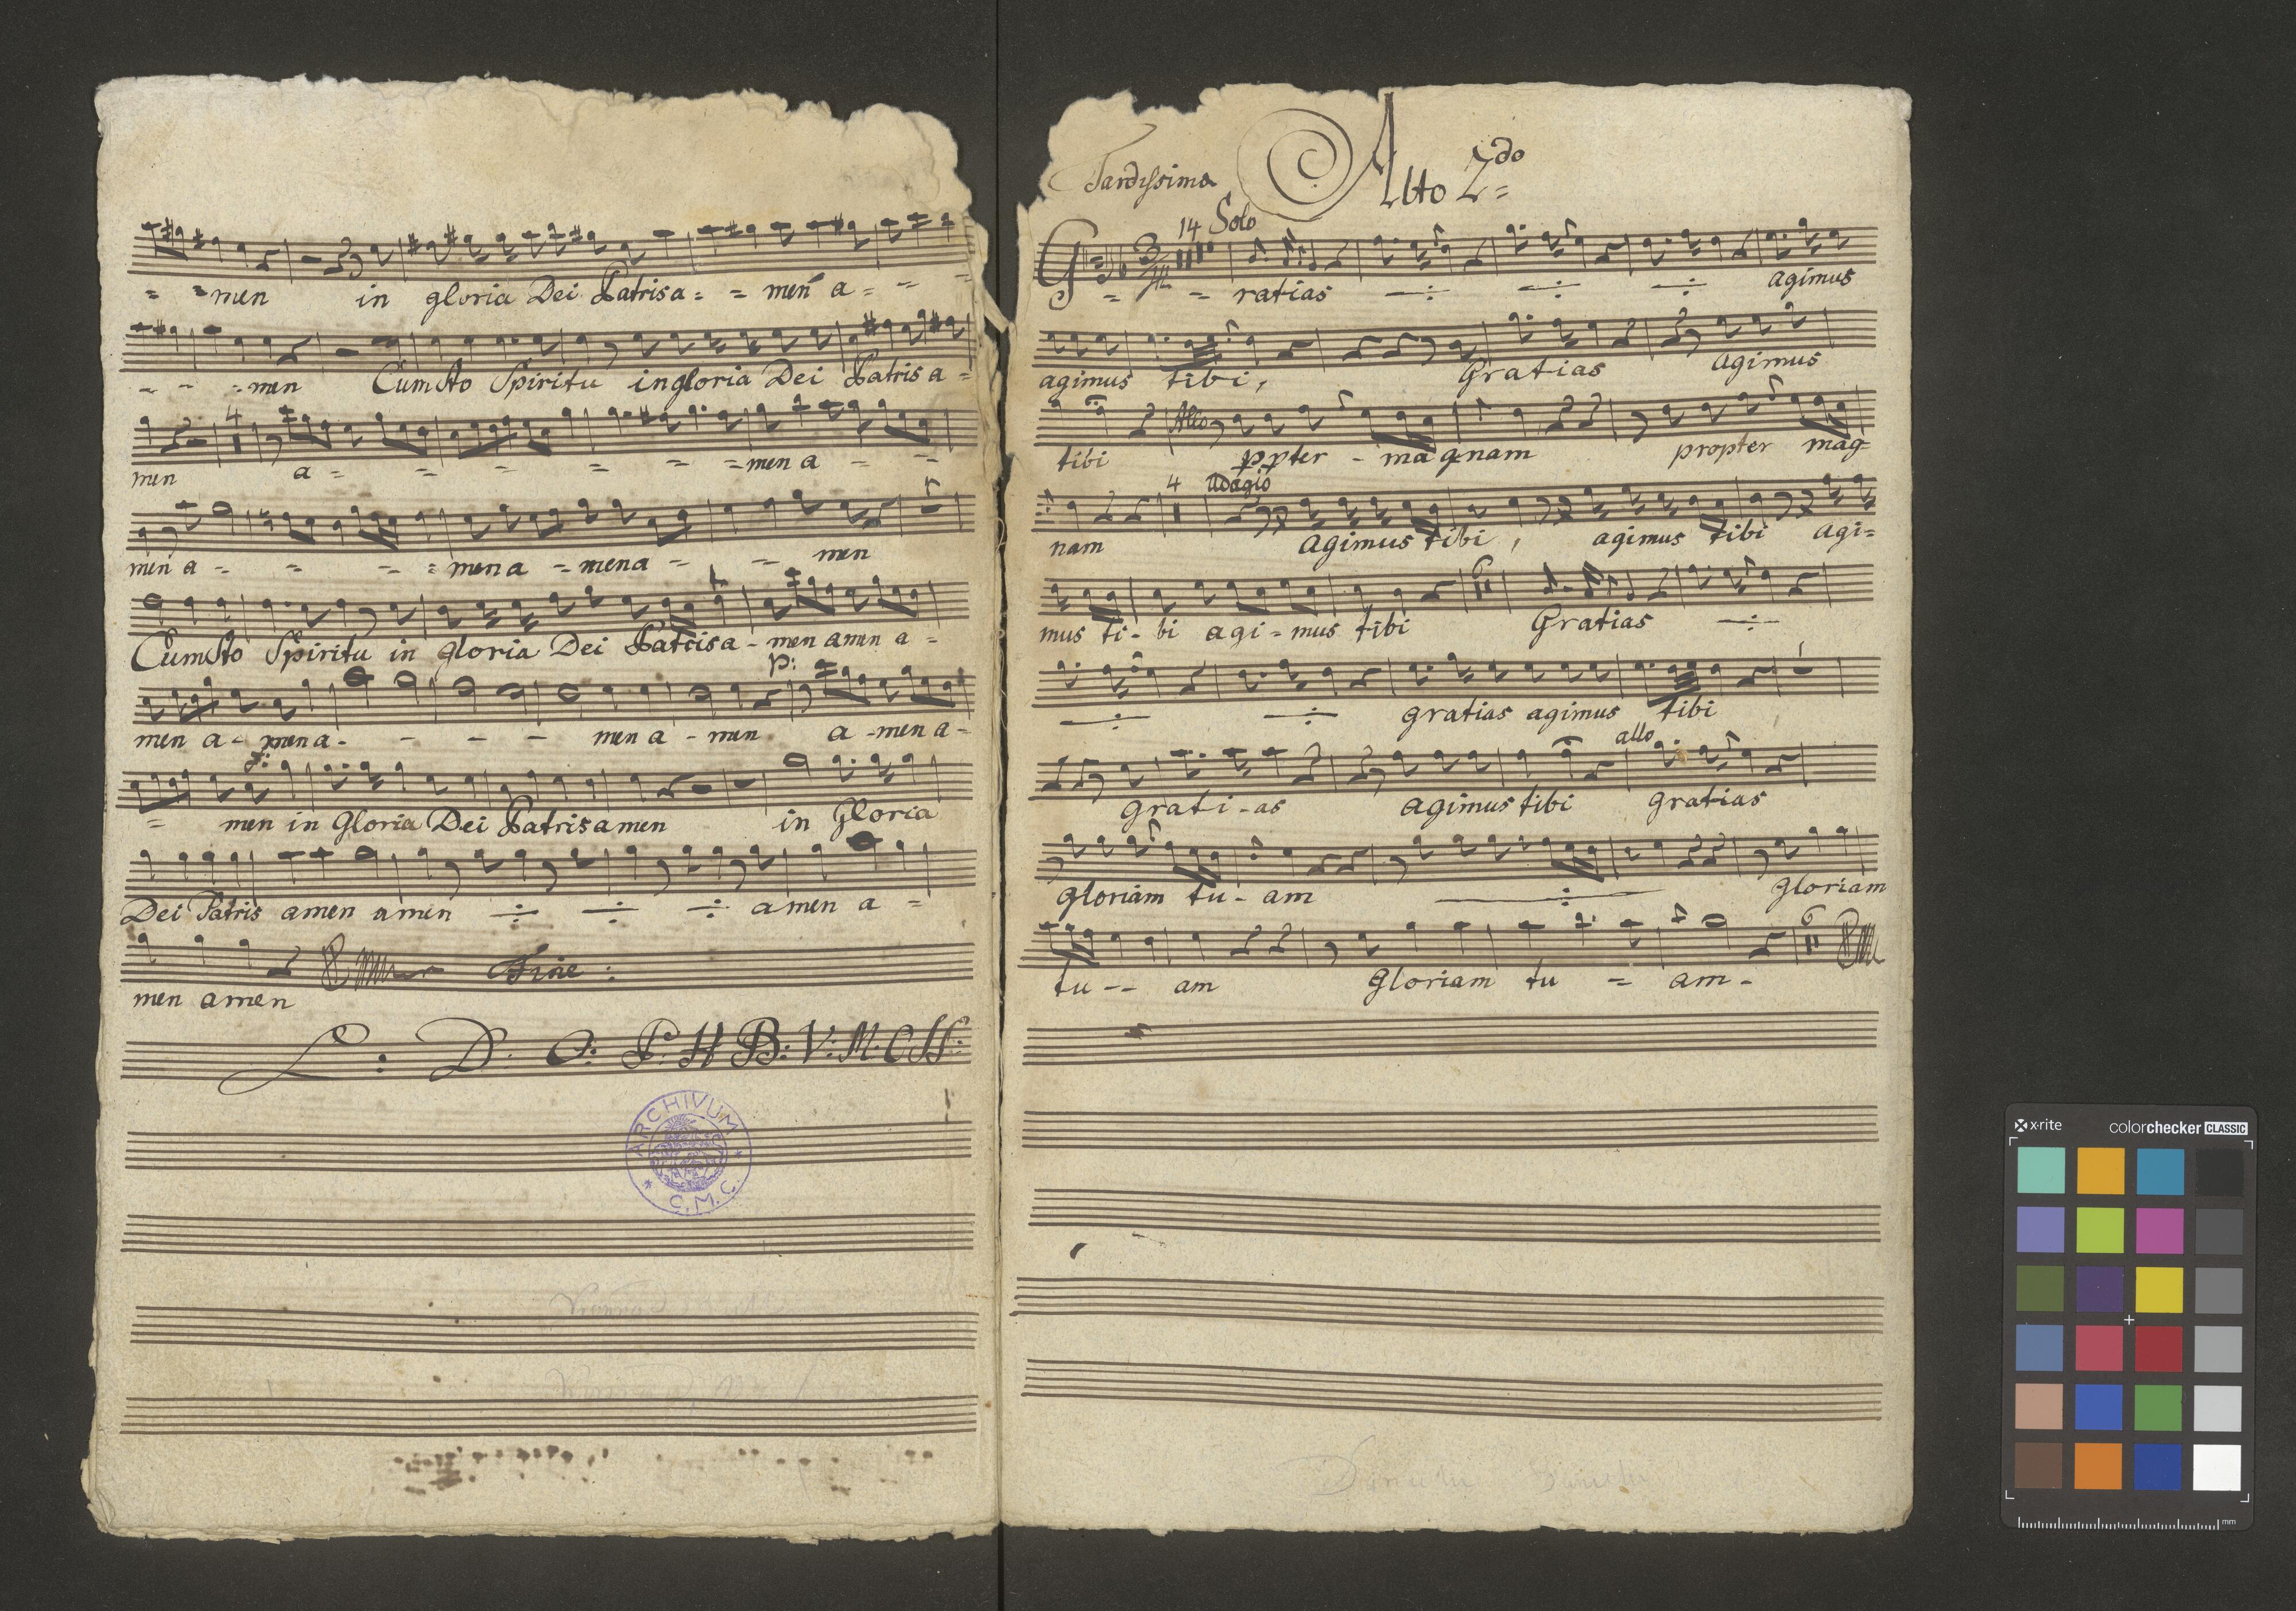 = = men in gloria Dei Patris a = = men a = = =
- - = men Cum Sto Spiritu in gloria Dei Patris a =
4
men a = = = = = = men a = =
men a = = = = men a = men a = = men
Cum Sto Spiritu in gloria Dei Patris a - men amen a =
p:
men a - men a - - - - men a - men a - men a =
f:
= men in Gloria Dei Patris amen in Gloria
Dei Patris amen amen ÷ ÷ ÷ amen a =
Fine:
men amen
L: D: O: P: H B: V: M: C H:
ARCHIVUM
* C.M.C. *
Tardissima Alto 2do
14 Solo
3/4
G = = ratias ÷ ÷ ÷ agimus
agimus tibi, Gratias agimus
Allo
tibi ppter - magnam propter mag-
4 adagio
nam agimus tibi, agimus tibi agi=
6
mus ti - bi agi = mus tibi Gratias ÷
÷ ÷ gratias agimus tibi
allo
grati - as agimus tibi gratias
gloriam tu - am ÷ gloriam
6
tu -- am gloriam tu = am -
x-rite colorchecker CLASSIC
mm